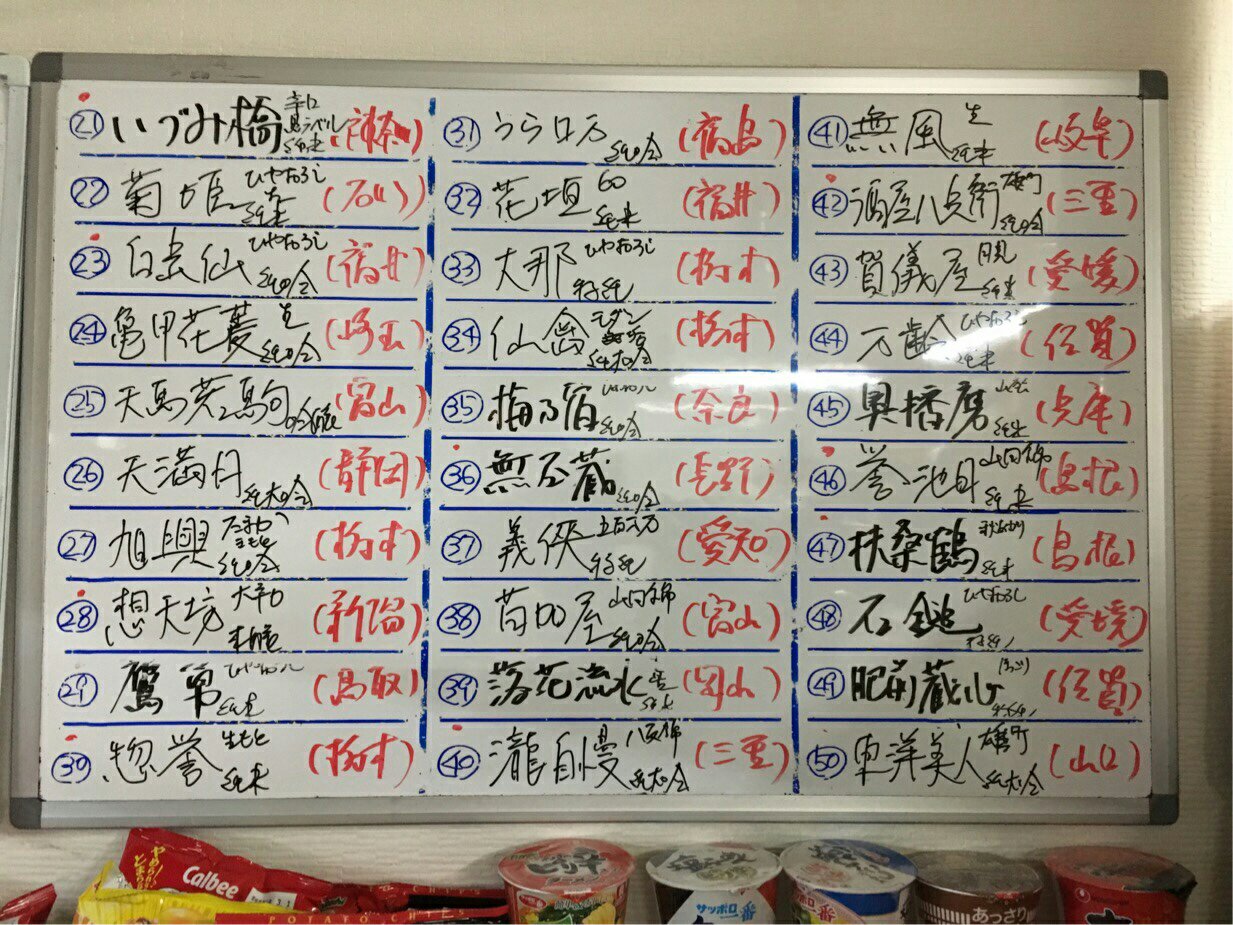 ㉑ いづみ橋 辛口 純米 (神奈川)
㉒ 菊姫 ひやおろし 純米 (石川)
㉓ 白岳仙 ひやおろし 純吟 (福井)
㉔ 亀甲花菱 生 純吟 (埼玉)
㉕ 天馬 吟醸 (富山)
㉖ 天満月 純大吟 (静岡)
㉗ 旭興 生もと 純吟 (栃木)
㉘ 想天坊 大辛口 本醸 (新潟)
㉙ 鷹勇 ひやおろし 純米 (鳥取)
㉚ 惣誉 生もと 純米 (栃木)
㉛ うら 純吟 (福島)
㉜ 花垣 60 純米 (福井)
㉝ 大那 ひやおろし 特純 (栃木)
㉞ 仙禽 モダン 純大吟 (栃木)
㉟ 梅乃宿 純吟 (奈良)
㊱ 無石蔵 純吟 (長野)
㊲ 義侠 五百万 特純 (愛知)
㊳ 苗加屋 山田錦 純吟 (富山)
㊴ 落花流水 (岡山)
㊵ 瀧自慢 八反錦 純大吟 (三重)
㊶ 無風 生 純米 (岐阜)
㊷ 酒屋八兵衛 雄町 純吟 (三重)
㊸ 賀儀屋 月見 純米 (愛媛)
㊹ 万齢 ひやおろし 純米 (佐賀)
㊺ 奥播磨 山廃 純米 (兵庫)
㊻ 誉池月 山田錦 純米 (島根)
㊼ 扶桑鶴 秋あがり 純米 (島根)
㊽ 石鎚 ひやおろし (愛媛)
㊾ 肥前蔵心 (佐賀)
㊿ 東洋美人 雄町 純大吟 (山口)
Calbee
POTATO CHIPS
サッポロ一番
あっさり